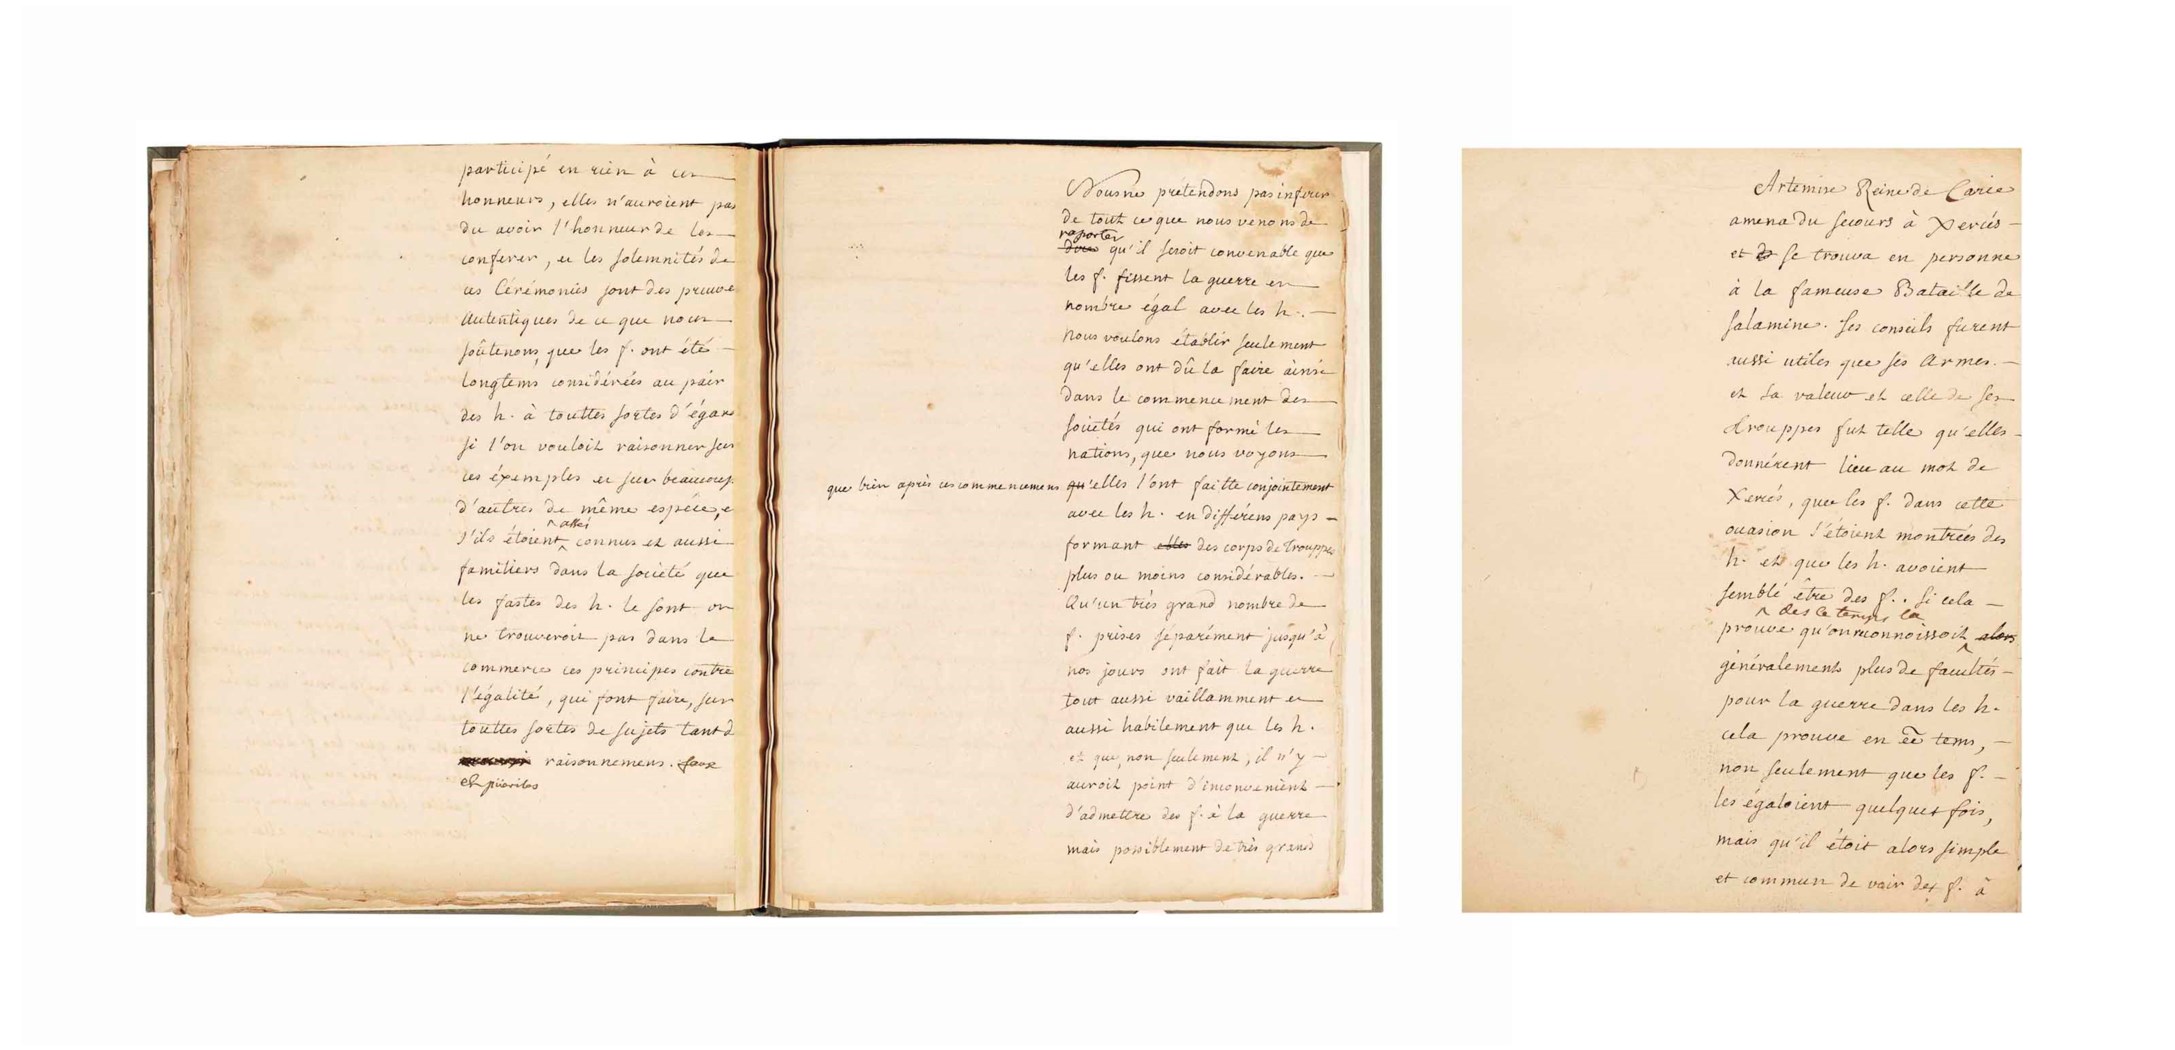 participé en rien à ces
honneurs, elles n'auroient pas
du avoir l'honneur de les
conferer, et les solemnités de
ces Cérémonies sont des preuve
Autentiques de ce que nous
soûtenons, que les f. ont été
longtems considérées au pair
des h. à touttes sortes d'égar
si l'on vouloit raisonner sur
ces éxemples et sur beaucoup
d'autres de même espéce, e
assés
s'ils étoient connus et aussi
familiers dans la société que
les fastes des h. le sont on
ne trouveroit pas dans le
commerce ces principes contre
l'égalité, qui font faire, sur
touttes sortes de sujets tant d
raisonnemens. faux
et puérils
Nous ne prétendons pas inferer
de tout ce que nous venons de
raporter
dire qu'il seroit convenable que
les f. fissent la guerre en
nombre égal avec les h. 
nous voulons établir seulement
qu'elles ont dû la faire àinsi
dans le commencement des
sociétés qui ont formé les
nations, que nous voyons
que bien après ces commencemens qu'elles l'ont faitte conjointement
avec les h. en différens pays
formant elles des corps de trouppes
plus ou moins considérables.
Qu'un très grand nombre de
f. prises séparément jusqu'à
nos jours ont fait la guerre
tout aussi vaillamment et
aussi habilement que les h.
et que, non seulement, il n'y
auroit point d'inconvenient
d'admettre des f. à la guerre
mais possiblement de très grand
Artemise Reine de Carie
amena du secours à Xercés
et se trouva en personne
à la fameuse Bataille de
Salamine. Ses conseils furent
aussi utiles que ses Armes.
et sa valeur et celle de ses
trouppes fut telle qu'elles
donnérent lieu au mot de
Xercés, que les f. dans cette
occasion s'étoient montrées des
h. et que les h. avoient
semblé être des f.. Si cela
des ce temps la
prouve qu'on reconnoissoit alors
généralement plus de facultés
pour la guerre dans les h.
cela prouve en ce tems,
non seulement que les f.
les égaloient quelques fois,
mais qu'il étoit alors simple
et commun de voir des f. à